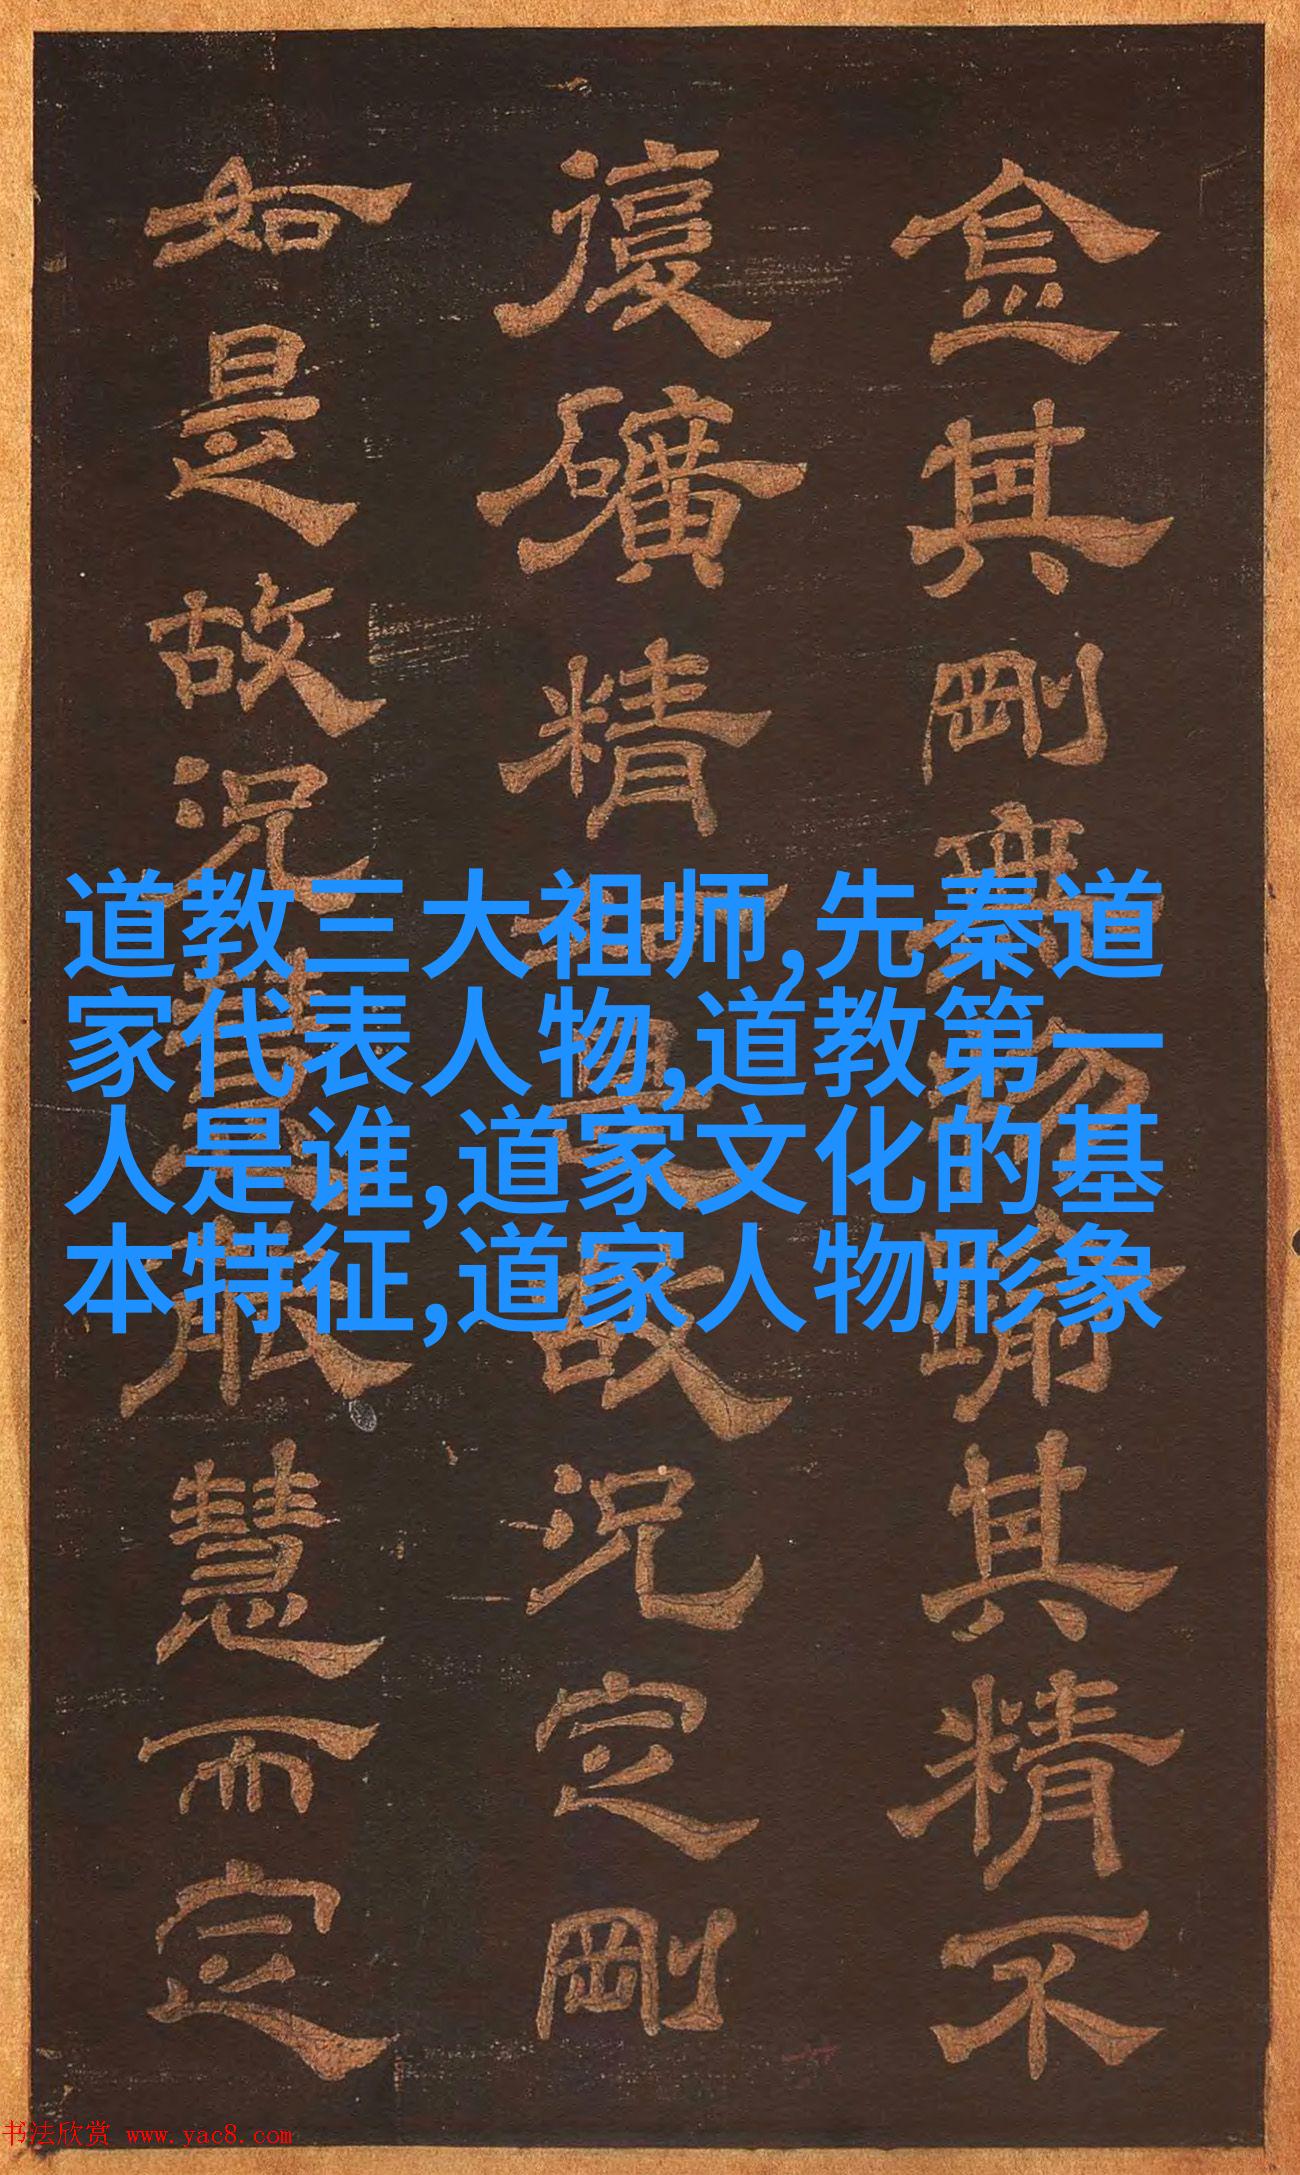 金其剛無物踰其精不
復礦精如是故況定剛
如是故況慧般慧而定
道教三大祖师,先秦道
家代表人物,道教第一
人是谁,道家文化的基
本特征,道家人物形象
书法欣赏 www.yac8.com